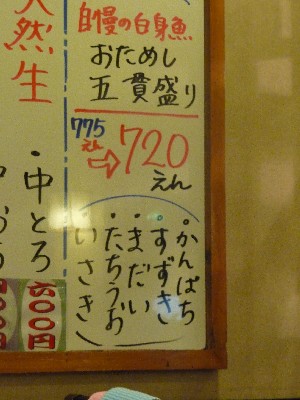 自慢の白身魚
おためし
五貫盛り
775
えん
⇨720
えん
・かんぱち
・すずき
・まだい
・たちうお
・いさき
天然生
・中とろ
六〇〇円